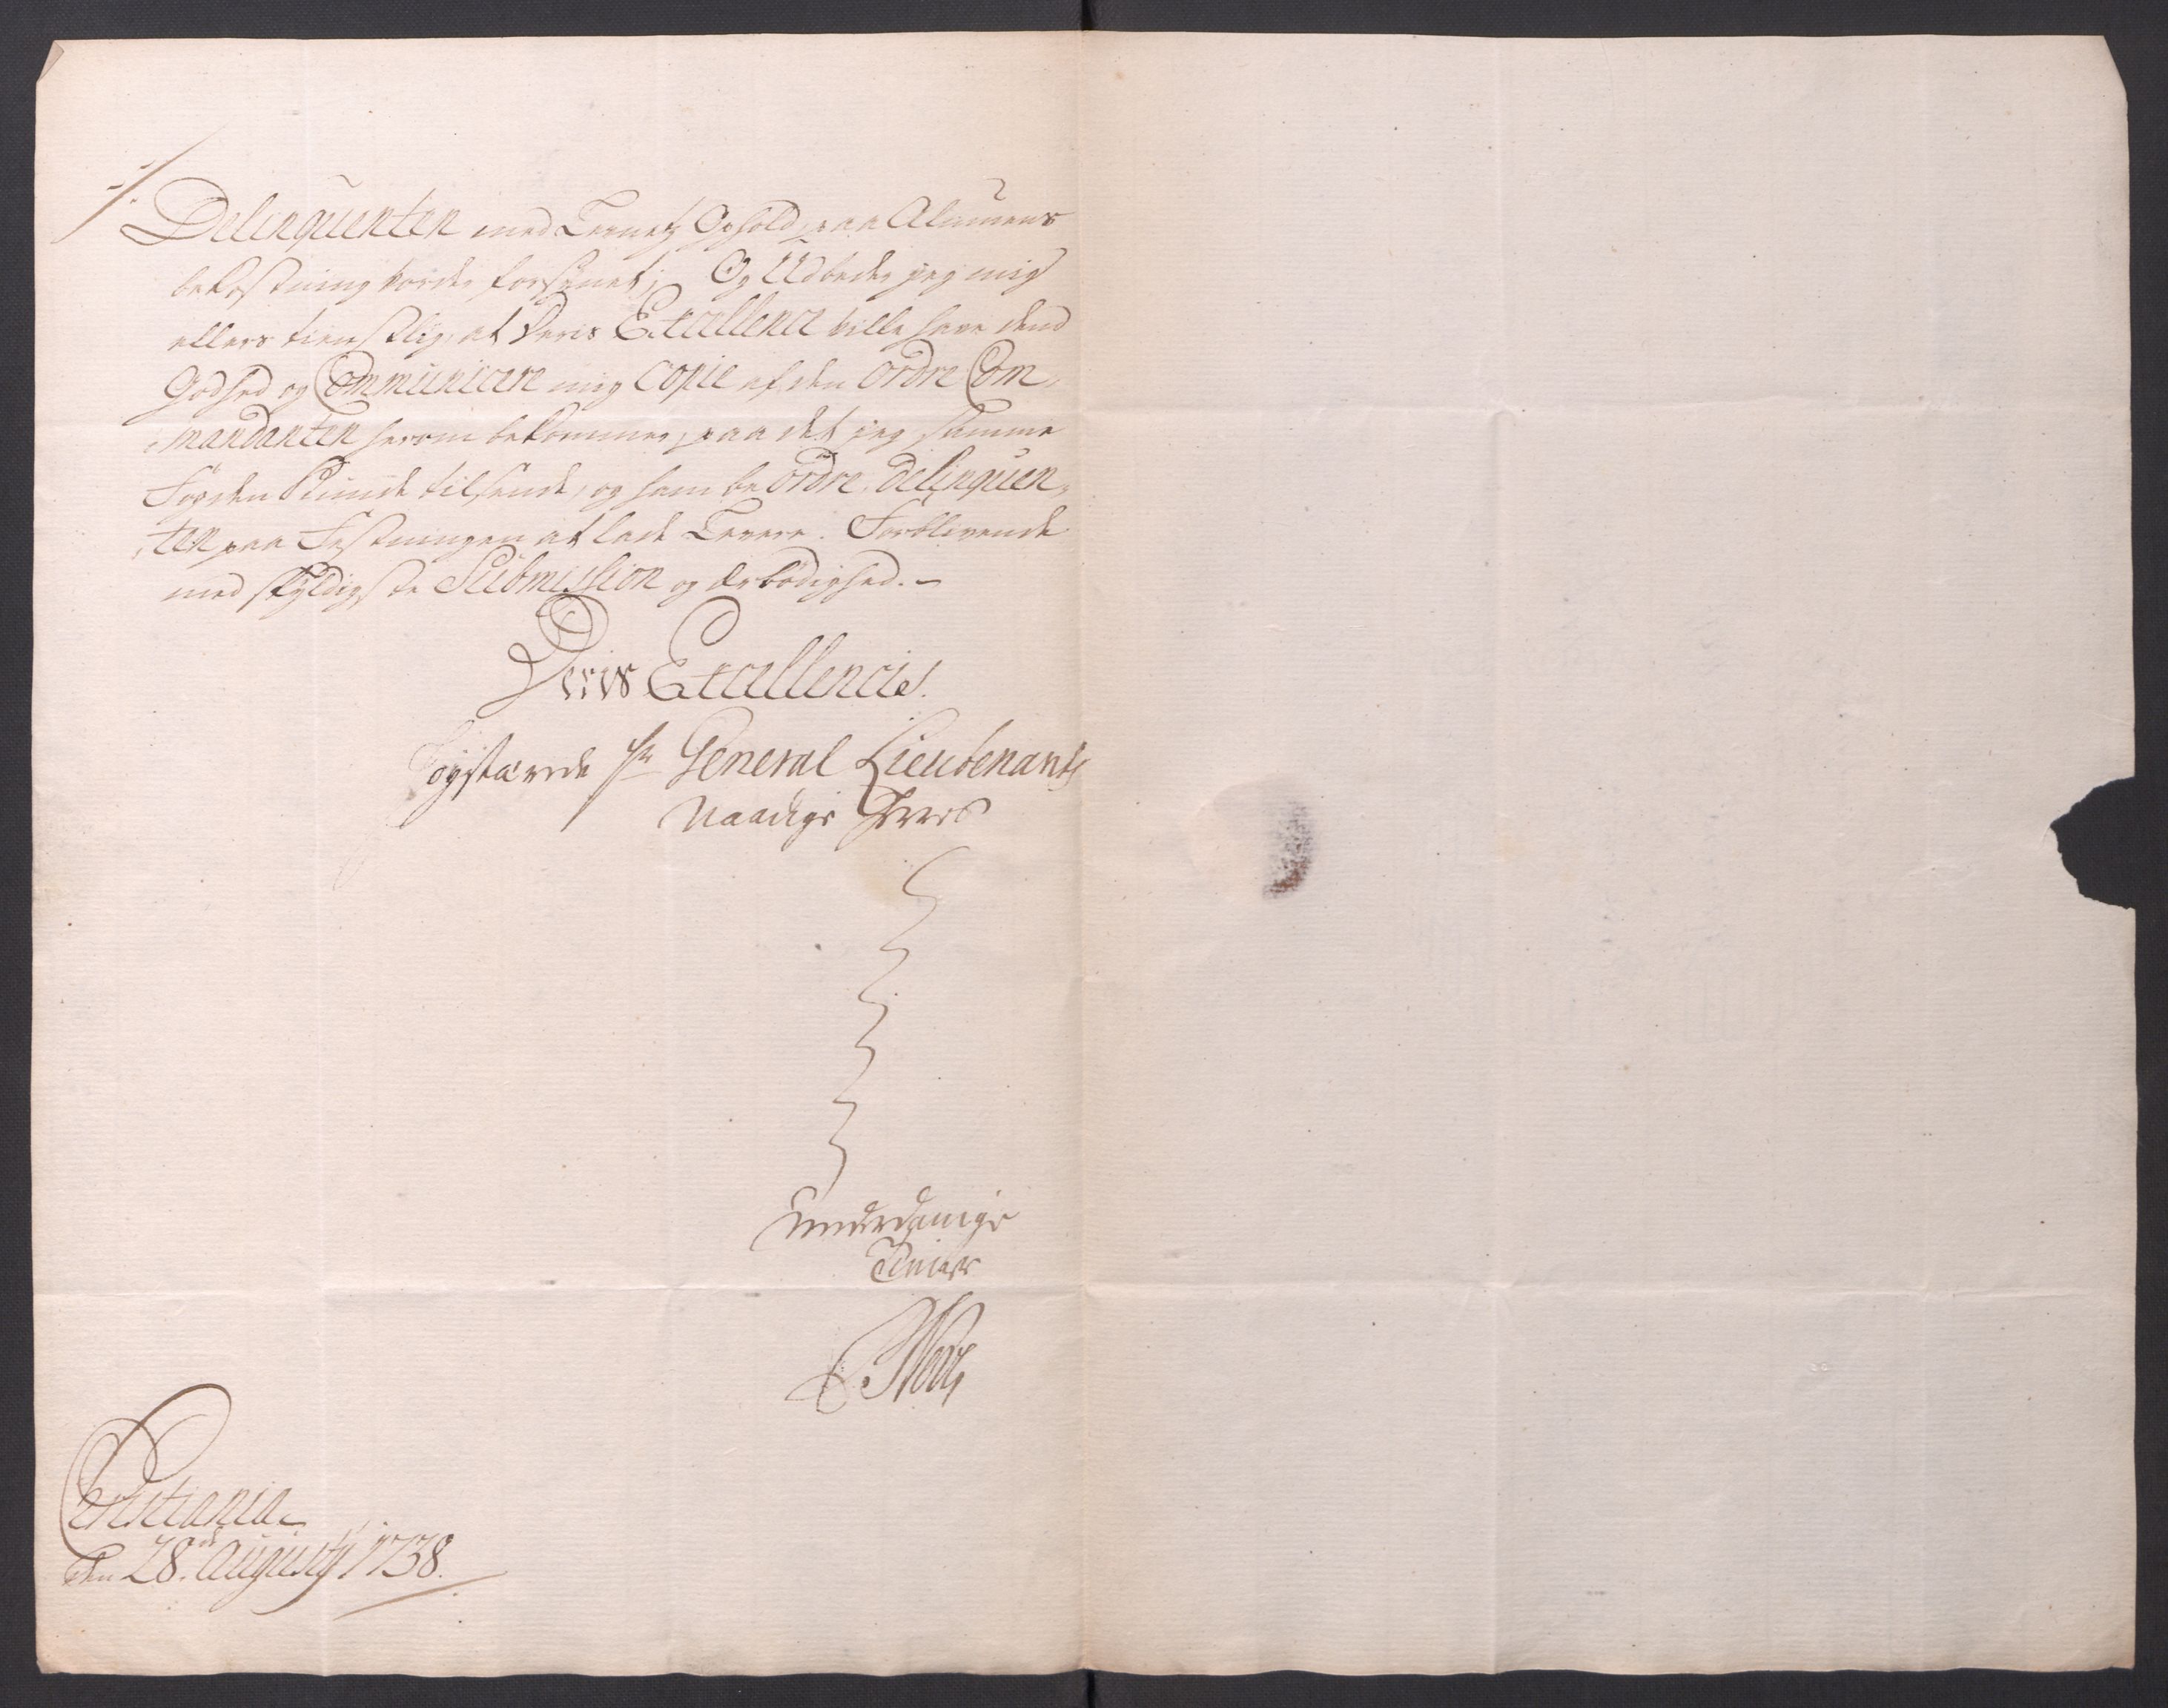 Delinquenten med Levnetz Ophold paa Almuens
bekostning vorder forsÿnet; Og Udbeder jeg mig
ellers tienstlig, at Deris Excellence ville have dend
Godhed og Communicere mig Copie af den Ordre Com-
mandanten herom bekommer, paa det jeg samme
Fogden Kunde tilsende, og ham beordre, delinquen-
ten paa Festningen at lade Levere. Forblivende
med skÿldigste Submission og ærbødighed.-
Deris Excellencis
Høystærede Hr General Lieutenants
Naadige Herres
Underdanige
Tiener
Christiania
den 28de Augustÿ 1738.